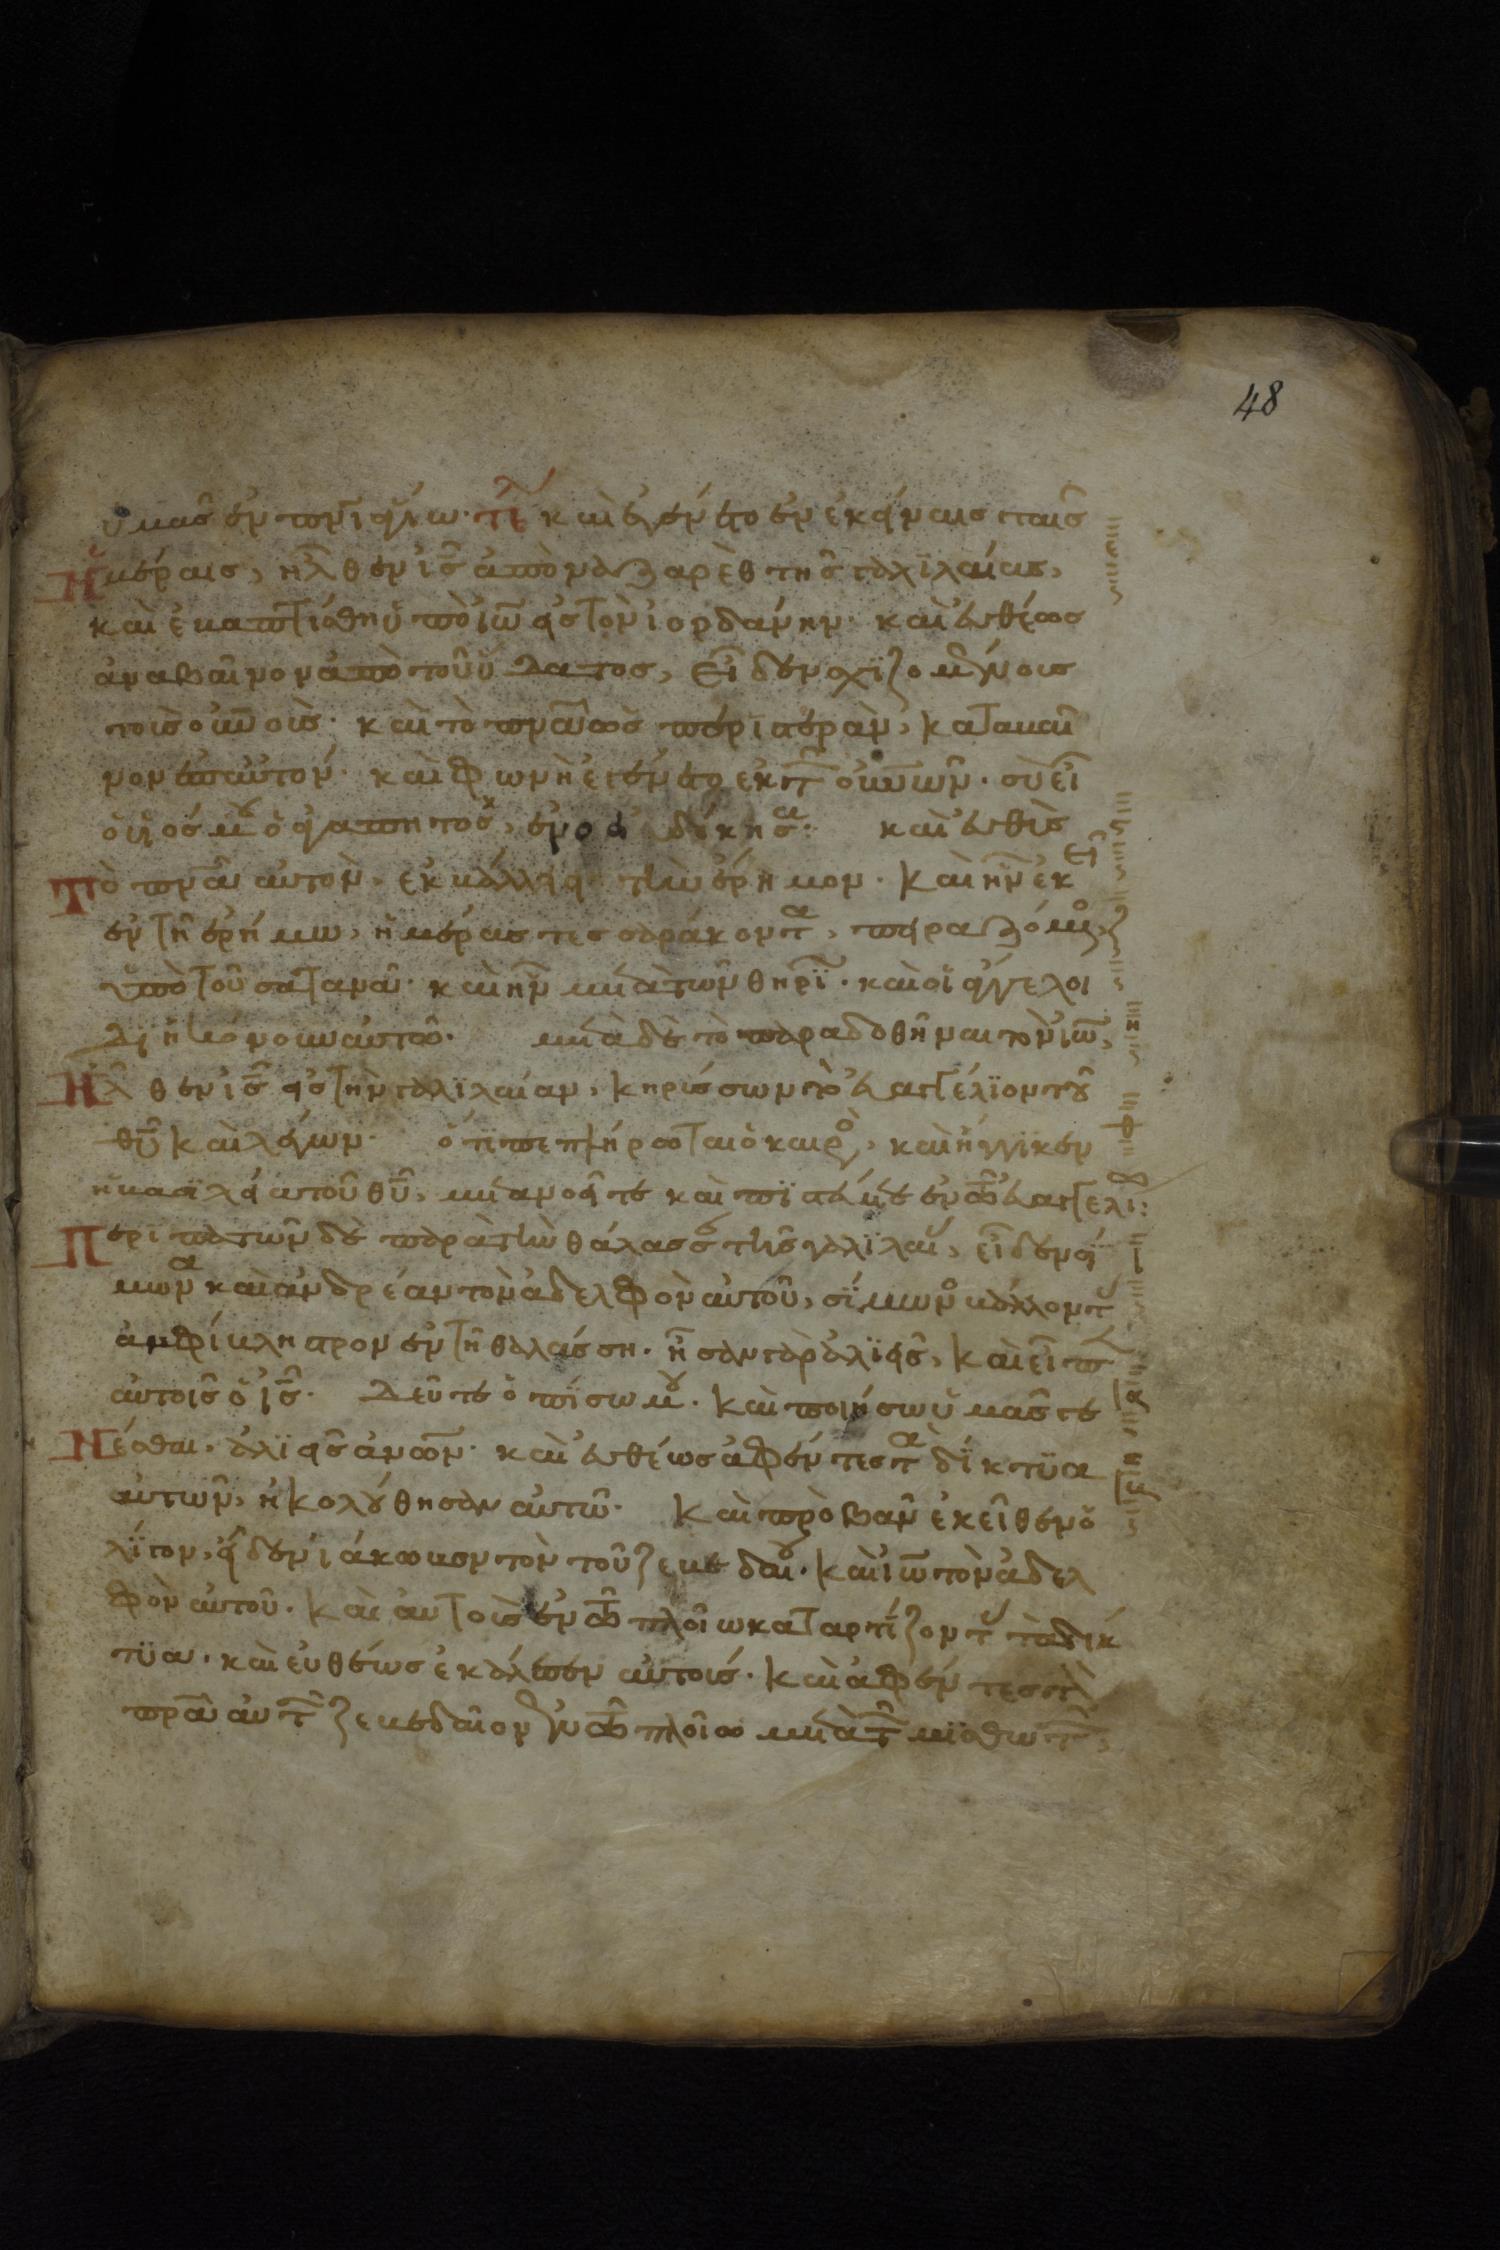 48
ὑμᾶς ἐν πν̅ι ἁγίω· τέ καὶ ἐγένετο ἐν ἐκείναις ταῖς
ἡμέραις, ἦλθεν ι̅ς̅ ἀπὸ ναζαρὲθ τῆς γαλϊλαίας,
καὶ ἐβαπτίσθη ὑπὸ ιω̅ εἰς τὸν ἰορδάνην· καὶ εὐθέως
ἀναβαῖνον ἀπὸ τοῦ ὕδατος, εἶδεν σχϊζομένους
τοῖς οὐν̅οις· καὶ τὸ πν̅α ὡς περϊστερὰν, καταβαῖ
νον ἐπ αὐτόν· καὶ φωνὴ ἐγένετο ἐκ τ̅ οὐν̅ων· σὺ εἶ
ὁ υἱός μου ὁ ἀγαπητός, ἐν ὁ εὐδόκησα: καὶ εὐθὺς
τὸ πν̅α αὐτὸν, ἐκβάλλει τὴν ἔρημον· καὶ ἦν ἐκεῖ
ἐν τῆ ἐρήμω, ἡμέρας τεσσαράκοντα, πειραζόμενο
ὑπὸ τοῦ σατανᾶ· καὶ ἦν μετὰ τῶν θηρϊ· καὶ οἱ ἄγγελοι
διηκόνουν αὐτῶ· μετὰ δὲ τὸ παραδοθῆναι τὸν ιω̅,
ἦλθεν ι̅ς̅ εἰς τὴν γαλϊλαίαν, κηρύσσων τὸ εὐαγγέλϊον του
θυ̅ καὶ λέγων· ὅτϊ πεπλήρωται ὁ καιρὸ, καὶ ἤγγϊκεν
ἡ βασϊλεία τοῦ θυ̅, μετανοεῖτε καὶ πϊστεύετε ἐν τῶ εὐαγγελί:
περιπατῶν δὲ παρὰ τὴν θάλασσ τῆς γαλϊλαί, εἶδεν σί
μωνα καὶ ἀνδρέαν τὸν ἀδελφὸν αὐτοῦ, σίμωνο βάλλοντ
ἀμφίβληστρον ἐν τῆ θαλάσση· ἦσαν γὰρ ἁλϊεῖς, καὶ εἶπ
αὐτοῖς ὁ ι̅ς̅· δεῦτε ὀπίσω μου· καὶ ποιήσω ὑμᾶς γε
νέσθαι, ἁλϊεῖς ἀνων· καὶ εὐθέως ἀφέντες τὰ δίκτϋα
αὐτῶν, ἠκολούθησαν αὐτῶ· καὶ προβὰν ἐκεῖθεν ὀ
λίγον, εἶδεν ϊάκωβον τὸν τοῦ ζεβεδαίου· καὶ ιω̅ τὸν ἀδελ
φὸν αὐτοῦ· καὶ αὐτοὺς ἐν τῶ πλοίω καταρτίζοντ τὰ δίκ
τϋα· καὶ εὐθέως ἐκάλεσεν αὐτούς· καὶ ἀφέντες τὸν
πρ̅α αὐτ̅ ζεβεδαῖον ἐν τῶ πλοίω μετὰ τ̅ μισθωτ̅,